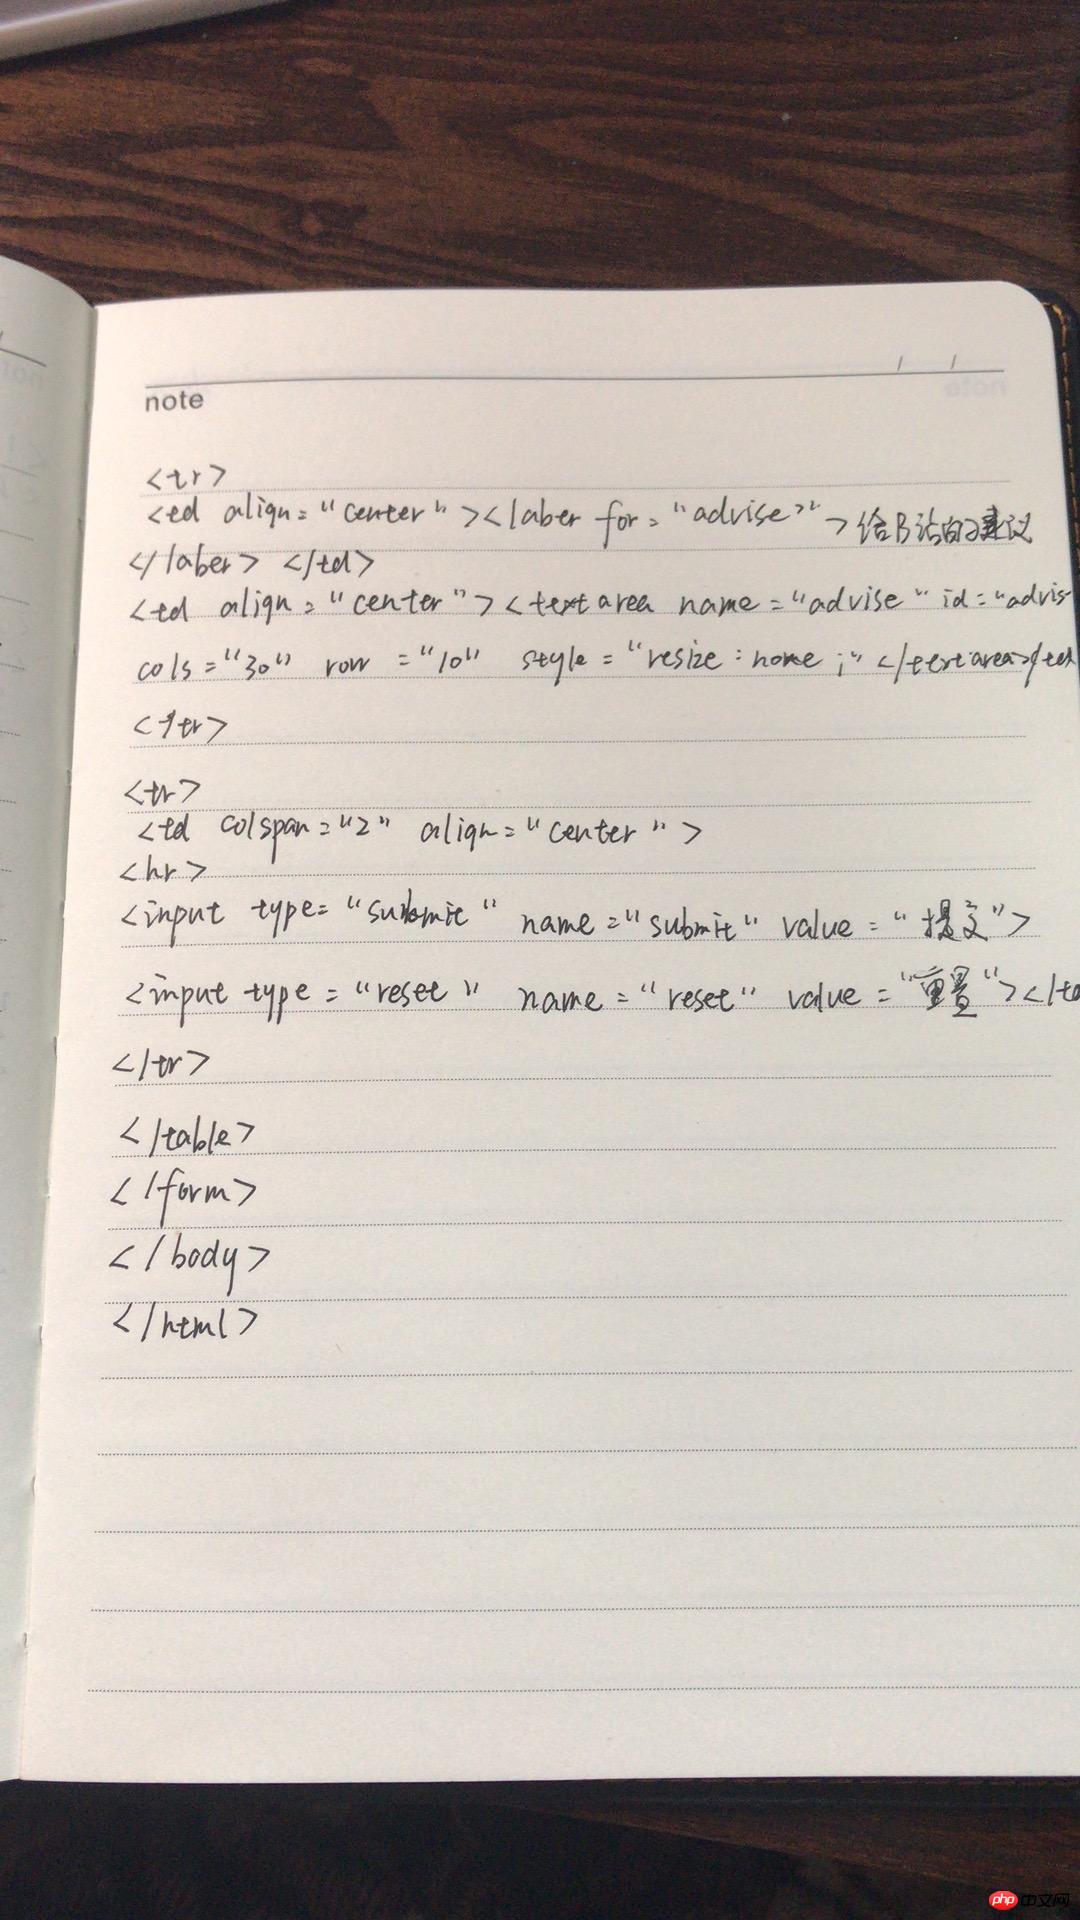 note
<tr>
<td align="center"><laber for="advise">给B站的建议
</laber></td>
<td align="center"><textarea name="advise" id="advis
cols="30" row="10" style="resize:nome;"</textarea></td
</tr>
<tr>
<td colspan="2" align="center">
<hr>
<input type="submit" name="submit" value="提交">
<input type="reset" name="reset" value="重置"></td
</tr>
</table>
</form>
</body>
</html>
php中文网